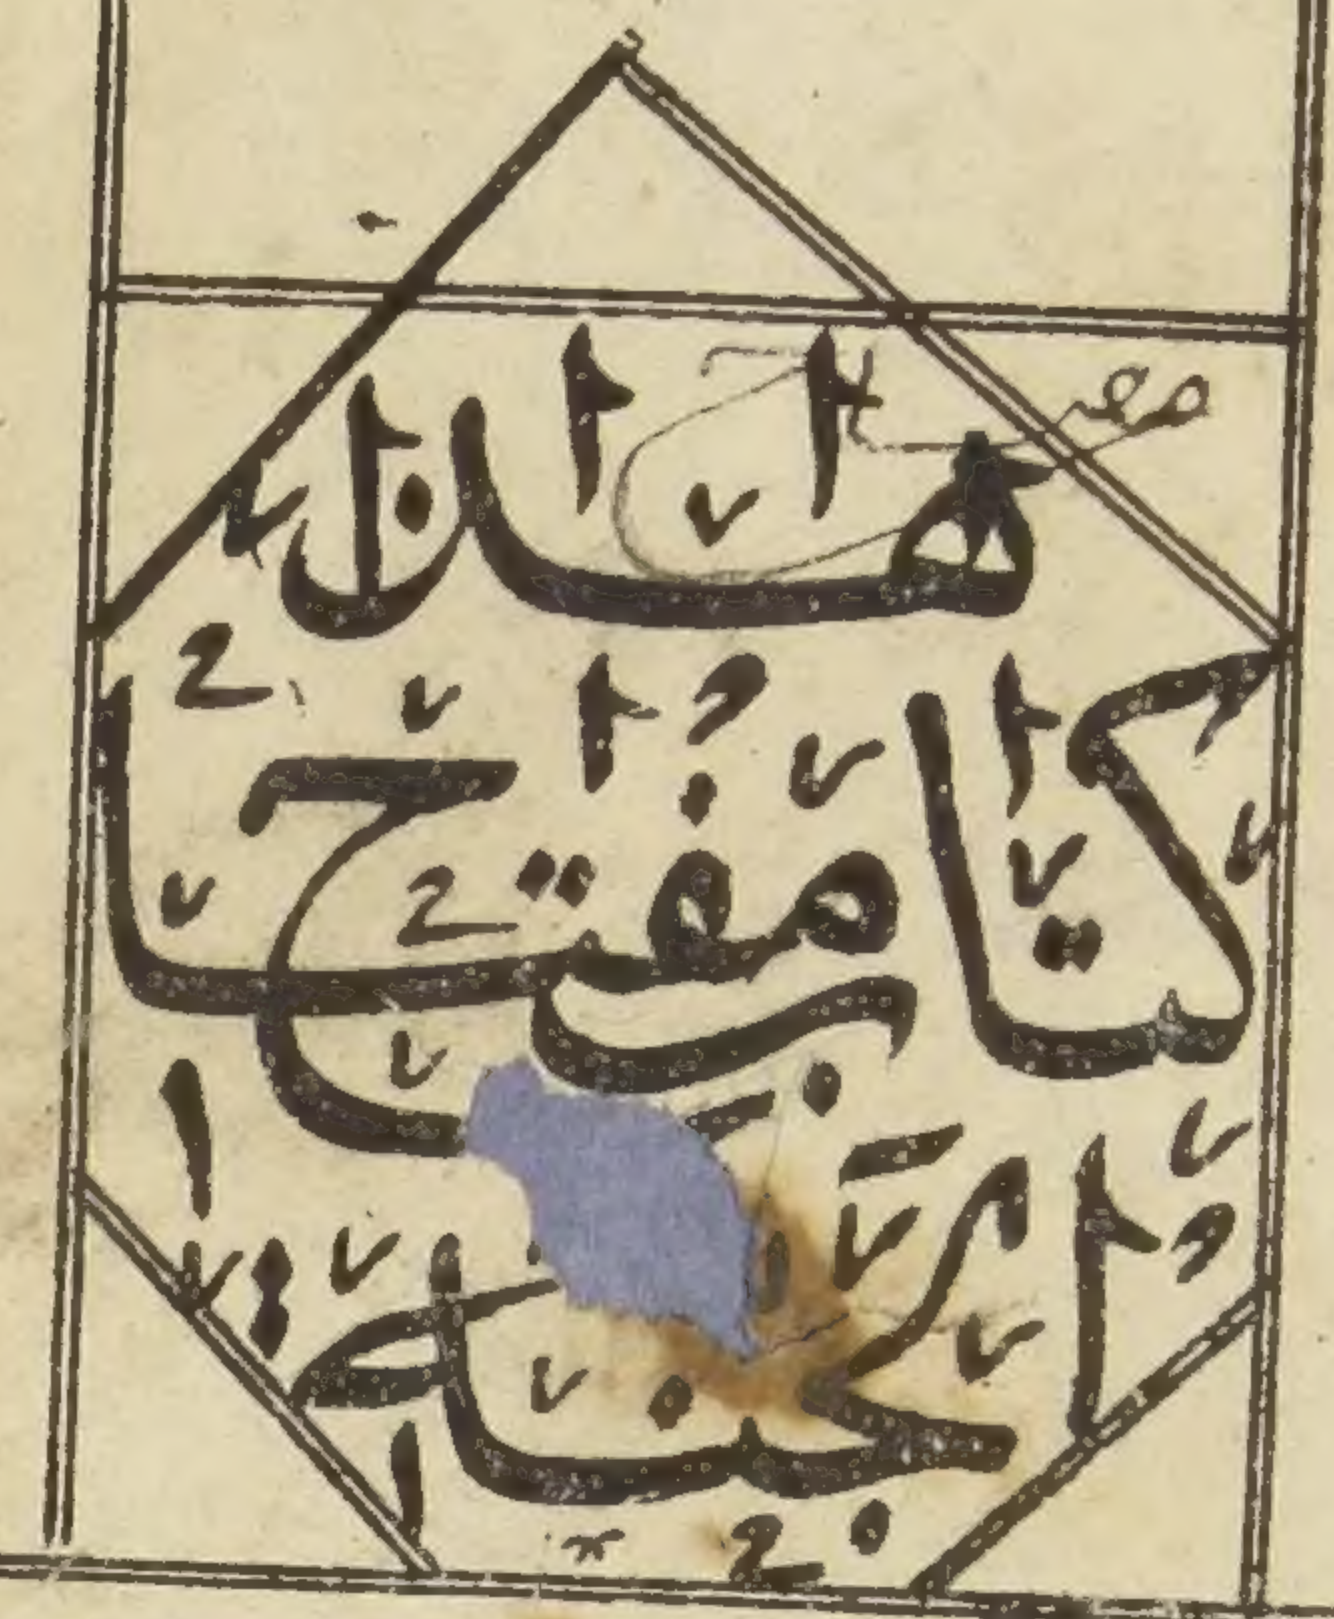 هذا
كتاب مفتاح
الجنة